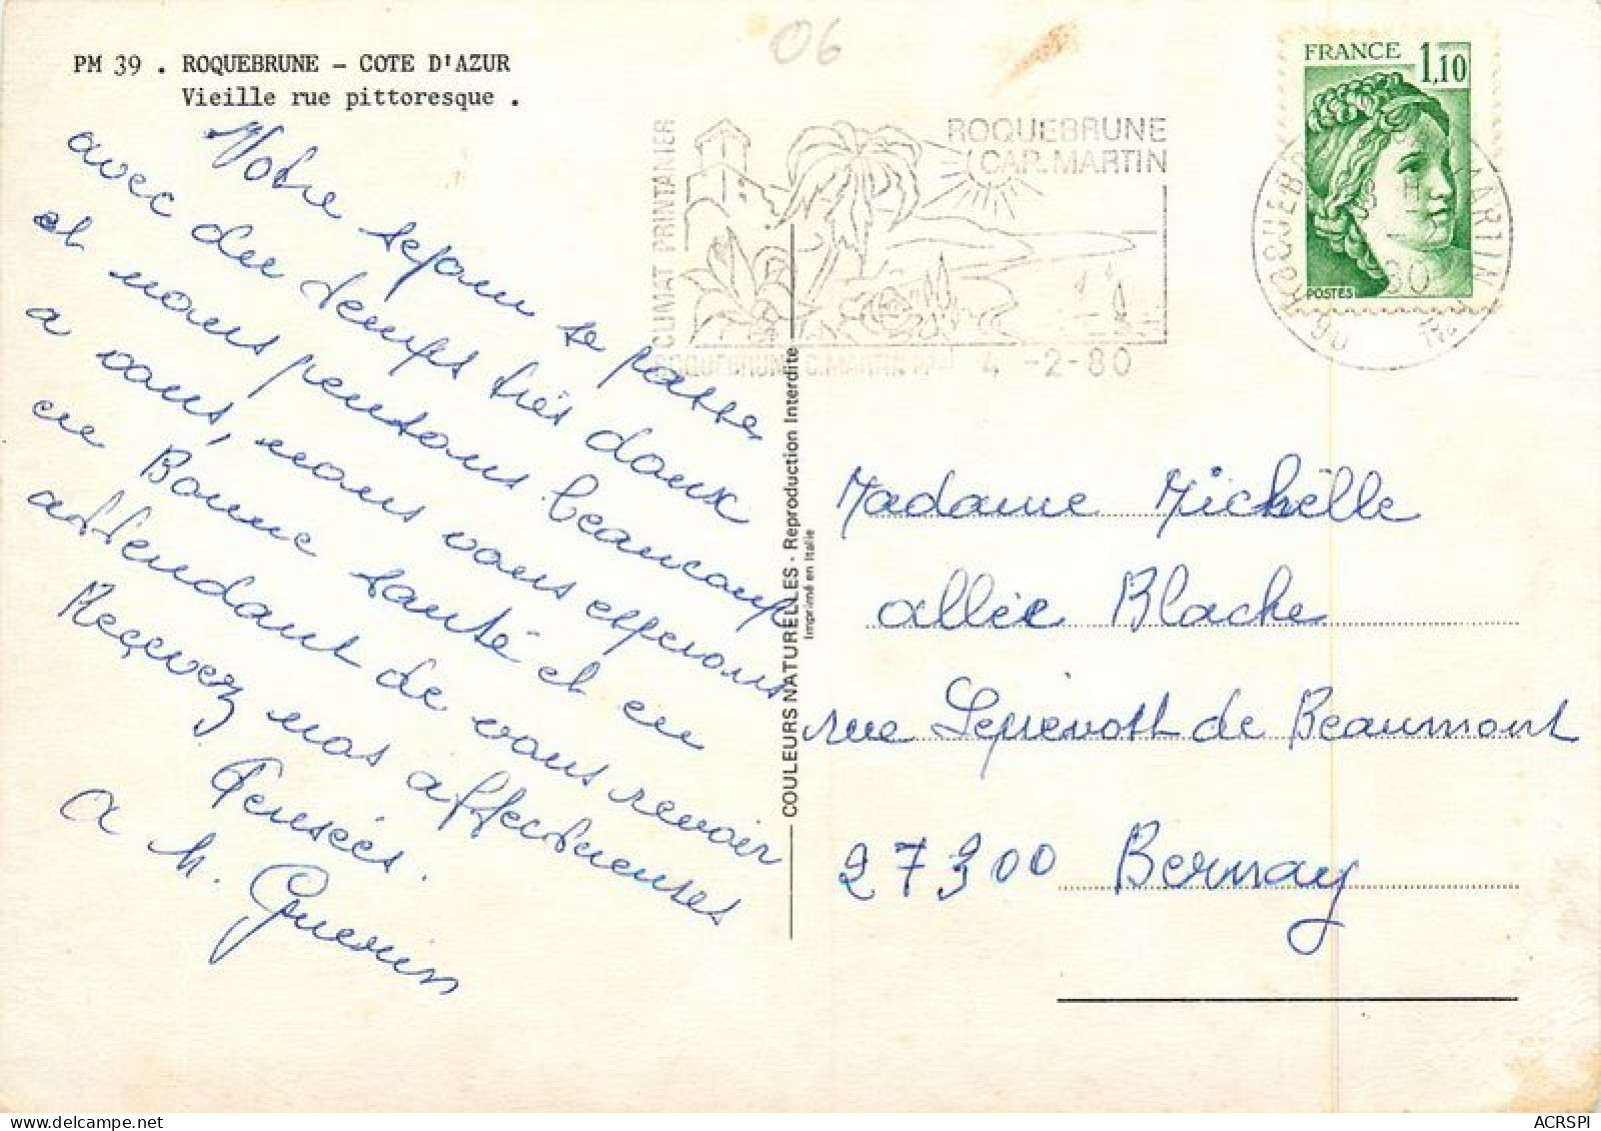 06
PM 39 . ROQUEBRUNE - COTE D'AZUR
Vieille rue pittoresque .
Notre sejour se passe
avec des temps très doux
et nous pensons beaucoup
a vous, nous vous esperons
en Bonne santé et en
attendant de vous revoir
Reçevez nos affectueuses
Pensées.
a M. Guerin
CLIMAT PRINTANIER
ROQUEBRUNE
CAP-MARTIN
ROQUEBRUNE C. MARTIN Ppal 4 -2-80
FRANCE 1,10
POSTES
COULEURS NATURELLES - Reproduction Interdite
Imprimé en Italie
Madame Michèlle
allée Blache
rue Leprevost de Beaumont
27300 Bernay
ACRSPI